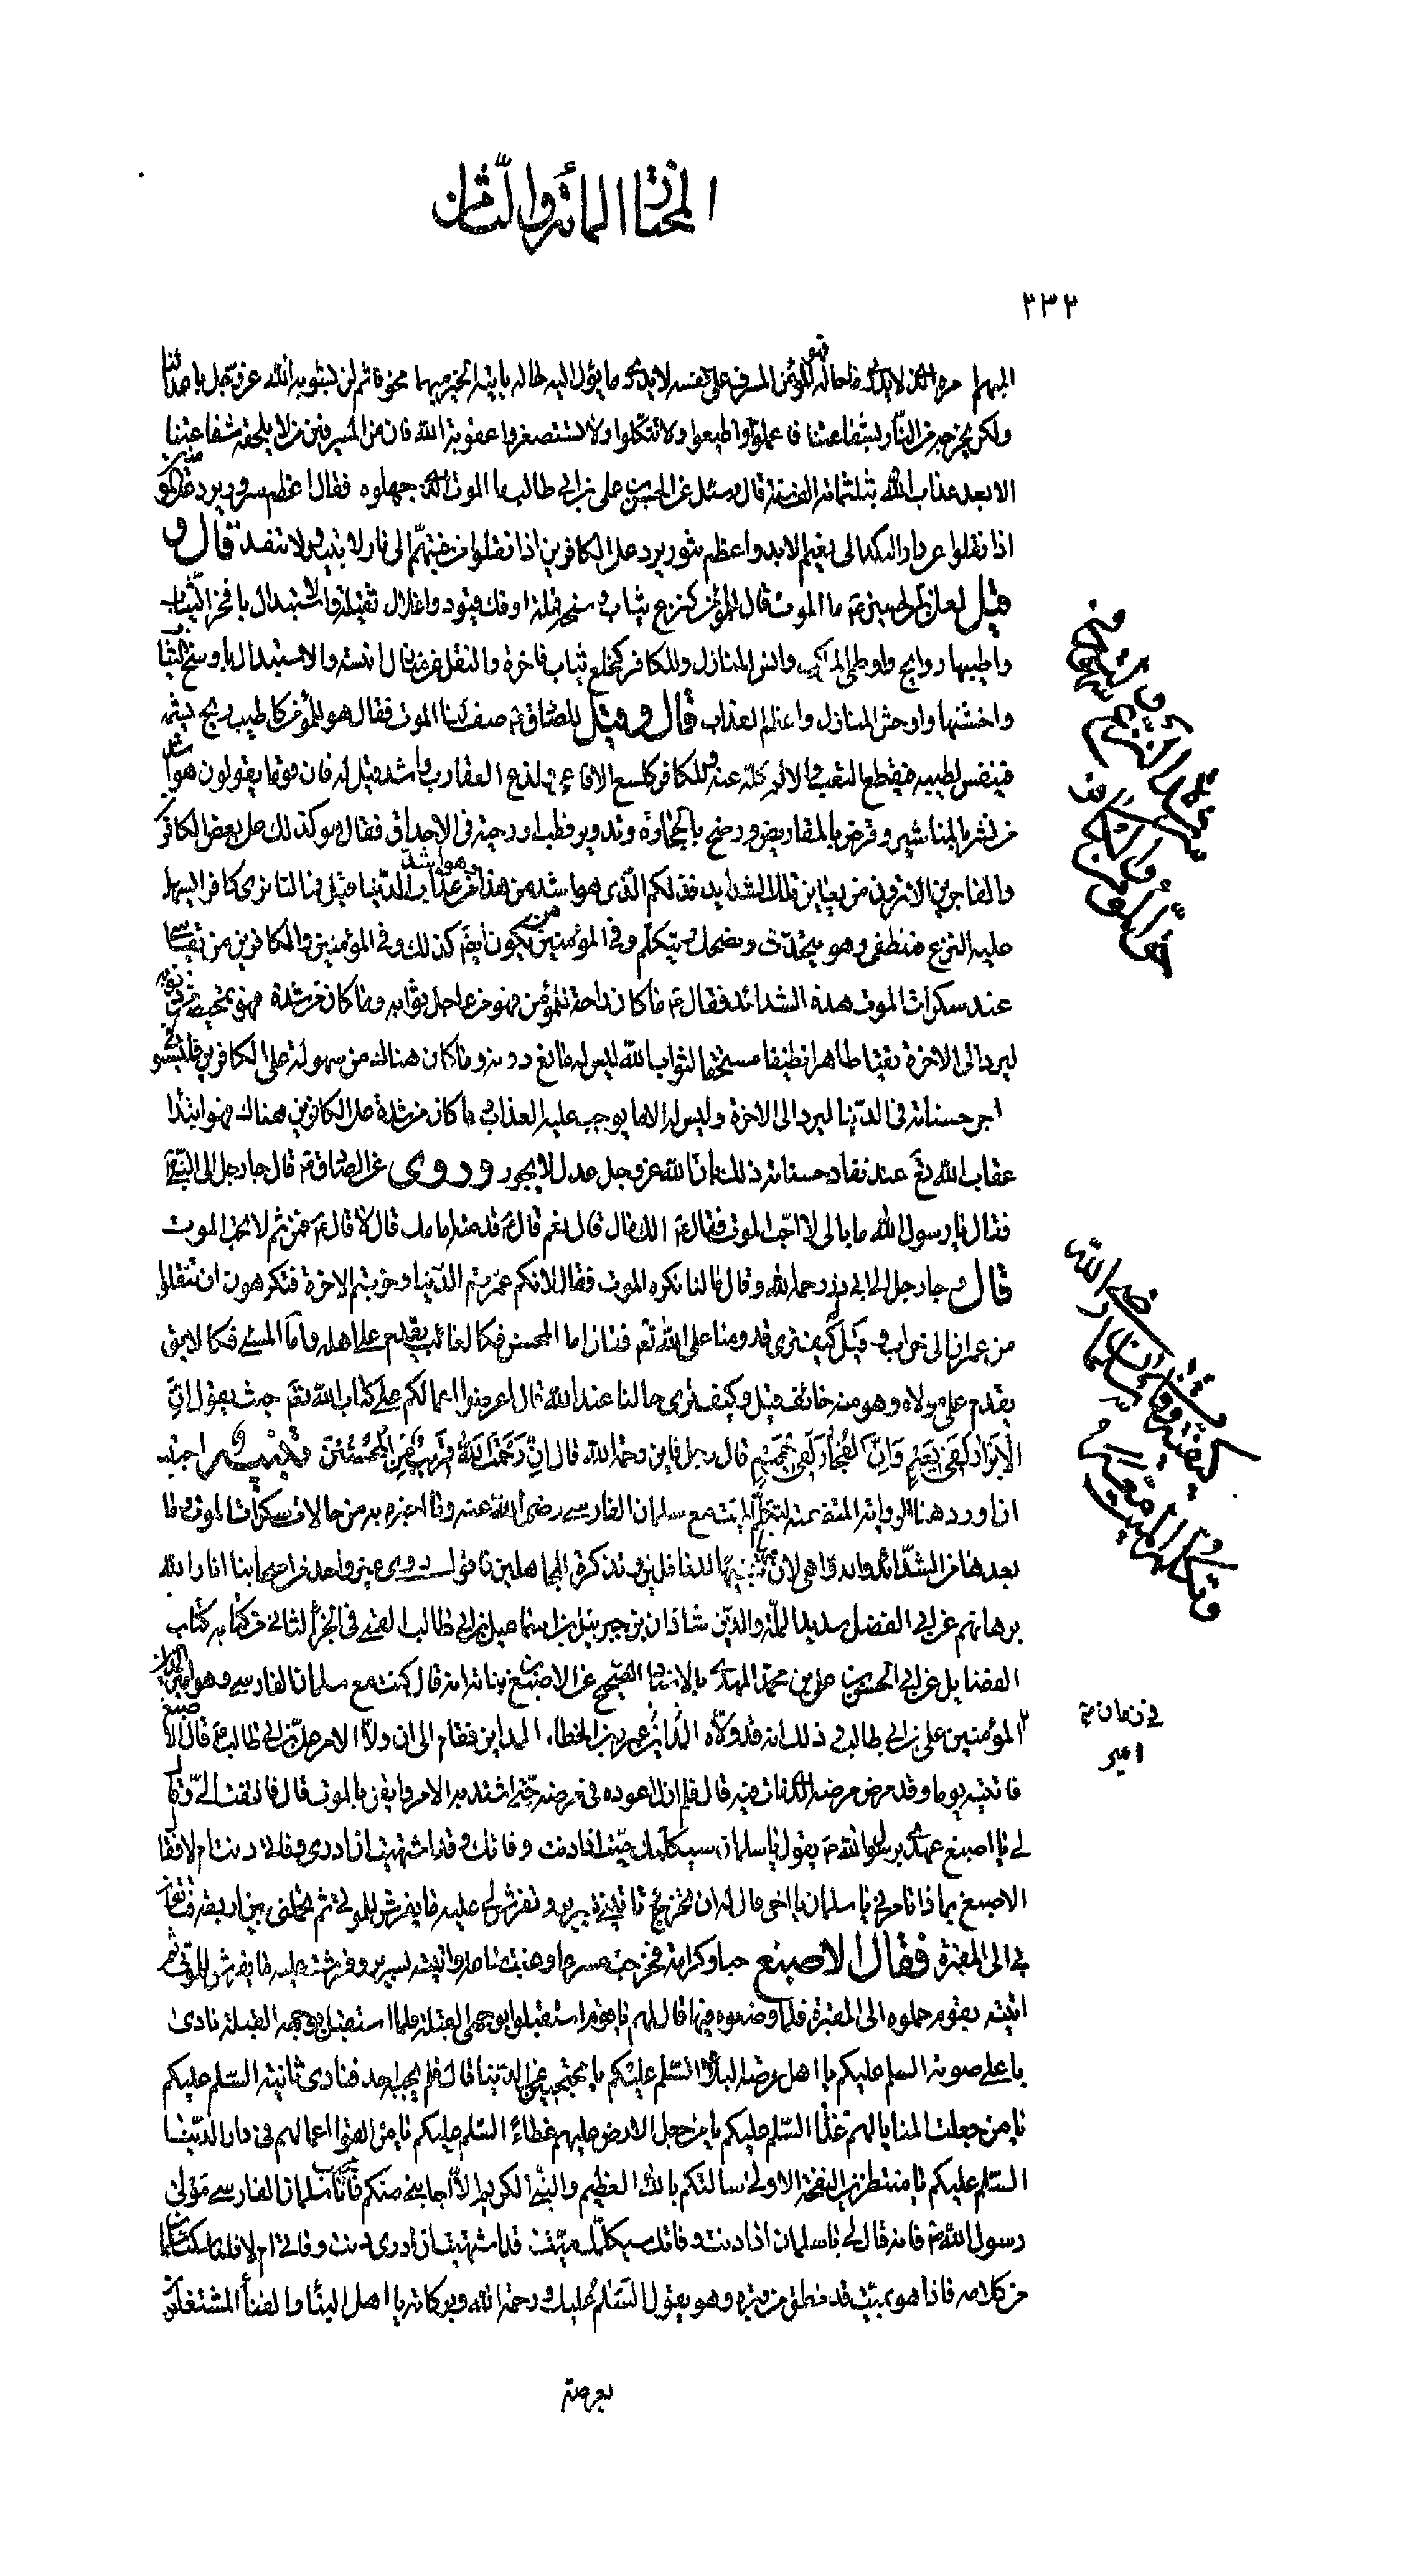 المختار المائة والثامن
٢٣٢
المبهم امره الذى لا يدرى ما حاله فهو المؤمن المسرف على نفسه لا يدرى ما يؤل اليه حاله يأتيه الخبر مبهما مخوفا ثم لن يسويه الله عز وجل باعدائنا
ولكن يخرجه من النار بشفاعتنا فاعملوا واطيعوا ولا تتكلوا ولا تستصغروا عقوبة الله فان من المسرفين من لا يلحقه شفاعتنا
الا بعد عذاب الله بثلثمائة الف سنة قال وسئل عن الحسن بن على بن ابى طالب ما الموت الذى جهلوه فقال اعظم سرور يرد على المؤمنين
اذا نقلوا عن دار النكد الى نعيم الابد واعظم ثبور يرد على الكافرين اذا نقلوا من جنتهم الى نار لا تبيد ولا تنفد قال و
قيل لعلى بن الحسين ع ما الموت قال للمؤمن كنزع ثياب وسخة قملة او فك قيود واغلال ثقيلة والاستبدال بافخر الثياب
واطيبها روايح واوطى المراكب وانس المنازل وللكافر كخلع ثياب فاخرة والنقل عن منازل انيسة والاستبدال باوسخ الثياب
واخشنها واوحش المنازل واعظم العذاب قال وقيل للصادق ع صف لنا الموت فقال هو للمؤمن كاطيب ريح يشمه
فينعس لطيبه فيقطع التعب والالم كله عنه وللكافر كلسع الافاعى ولدغ العقارب واشد قيل له فان قوما يقولون هو اشد
من نشر بالمناشير وقرض بالمقاريض ورضخ بالحجارة وتدوير قطب الارحية فى الاحداق فقال هو كذلك على بعض الكافرين
والفاجرين الا ترون من يعاين تلك الشدايد فذلكم الذى هو اشد من هذا وهو اشد من عذاب الدنيا قيل فما لنا نرى كافرا يسهل
عليه النزع فينطفى وهو يتحدث ويضحك ويتكلم وفى المؤمنين من يكون ايضا كذلك وفى المؤمنين والكافرين من يقاسى
عند سكرات الموت هذه الشدائد فقال ع ما كان راحة للمؤمن فهو من عاجل ثوابه وما كان من شدة فهو تمحيصه من ذنوبه
ليرد الى الاخرة نقيا طاهرا نظيفا مستحقا لثواب الله ليس له مانع دونه وما كان هناك من سهولة على الكافرين فليستوفى
اجر حسناته فى الدنيا ليرد الى الاخرة وليس له الا ما يوجب عليه العذاب وما كان من شدة على الكافرين هناك فهو ابتداء
عقاب الله تع عند نفاد حسناته ذلك بان الله عز وجل عدل لا يجور وروى عن الصادق ع قال جاء رجل الى النبى ص
فقال يا رسول الله ما بالى لا احب الموت فقال ص الك مال قال نعم قال ص قدمته امامك قال لا قال ص فمن ثم لا تحب الموت
قال و جاء رجل الى ابى ذر رحمه الله وقال ما لنا نكره الموت فقال لانكم عمرتم الدنيا وخربتم الاخرة فتكرهون ان تنقلوا
من عمران الى خراب وقيل كيف ترى قدومنا على الله تع فقال اما المحسن فكالغائب يقدم على اهله واما المسئ فكالابق
يقدم على مولاه وهو منه خائف قيل وكيف ترى حالنا عند الله قال اعرضوا اعمالكم على كتاب الله تع حيث يقول ان
الابرار لفى نعيم وان الفجار لفى جحيم قال رجل فاين رحمة الله قال ان رحمت الله قريب من المحسنين تنبيه احببت
ان اورد هنا الرواية المتضمنة لتكلم الميت مع سلمان الفارسى رضى الله عنه وما اخبره به من حالات سكرات الموت وما
بعدها من الشدائد والدواهى لان فيها تنبيها للغافلين وتذكرة للجاهلين فاقول روى غير واحد من اصحابنا انار الله
برهانهم عن ابى الفضل سديد الملة والدين شاذان بن جبرئيل بن اسماعيل بن ابى طالب القمى فى الجزء الثانى من كتابه كتاب
الفضايل عن ابى الحسن بن على بن محمد المهدى بالاسناد الصحيح عن الاصبغ بن نباتة انه قال كنت مع سلمان الفارسى وهو امير المدائن
فى زمان امير
المؤمنين على بن ابى طالب وذلك انه قد ولاه المدائن عمر بن الخطاب المداين فقام الى ان ولى الامر على بن ابى طالب ع قال الاصبغ
فاتيته يوما وقد مرض مرضه الذى مات فيه قال فلم ازل اعوده فى مرضه حتى اشتد به الامر وايقن بالموت قال فالتفت الى وقال
لى يا اصبغ عهدى برسول الله ص يقول يا سلمان سيكلمك ميت اذا دنت وفاتك وقد اشتهيت ان ادرى وفاتى دنت ام لا فقال
الاصبغ بماذا تامرنى يا سلمان يا اخى قال له ان تخرج وتاتينى بسرير وتفرش لى عليه ما يفرش للموتى ثم تحملنى بين اربعة فتاتون
بى الى المقبرة فقال الاصبغ حبا وكرامة فخرجت مسرعا وغبت ساعة واتيته بسرير وفرشت عليه ما يفرش للموتى ثم
اتيته بقوم حملوه الى المقبرة فلما وضعوه فيها قال لهم يا قوم استقبلوا بوجهى القبلة فلما استقبل بوجهه القبلة نادى
باعلى صوته السلم عليكم يا اهل عرصة البلاء السلم عليكم يا محتجبين عن الدنيا قال فلم يجبه احد فنادى ثانية السلم عليكم
يا من جعلت المنايا لهم غذاء السلم عليكم يا من جعل الارض عليهم غطاء السلم عليكم يا من لقوا اعمالهم فى دار الدنيا
السلم عليكم يا منتظرين النفخة الاولى سالتكم بالله العظيم والنبى الكريم الا اجابنى منكم مجيب فانا سلمان الفارسى مولى
رسول الله ص فانه قال لى يا سلمان اذا دنت وفاتك سيكلمك ميت وقد اشتهيت ان ادرى دنت وفاتى ام لا فلما سكت سلمان
من كلامه فاذا هو بميت قد نطق من قبره وهو يقول السلم عليك ورحمة الله وبركاته يا اهل البناء والفناء المشتغلون
بعرصة